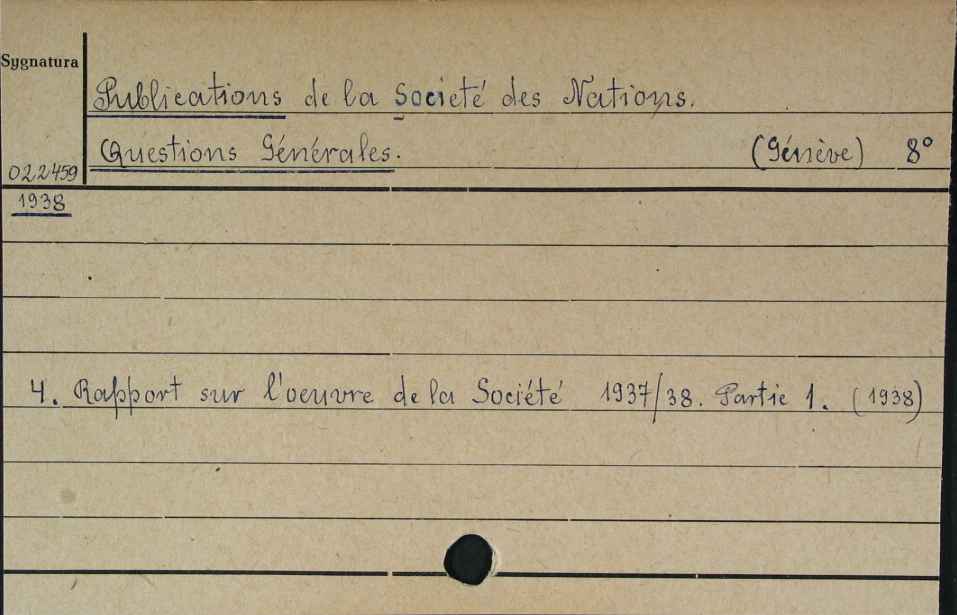 Sygnatura
Publications de la Societé des Nations.
Questions Générales. (Génève) 8°
022459
1938
4. Rapport sur l'oeuvre de la Société 1937/38. Partie 1. (1938)